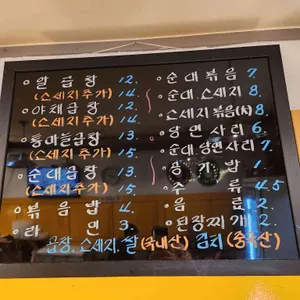 알곱창 12.
(소세지추가) 14.
야채곱창 12.
(소세지추가) 14.
통마늘곱창 13.
(소세지추가) 15.
순대곱창 13.
(소세지추가) 15.
볶음밥 4.
라면 3.
순대볶음 7.
순대.소세지 8.
소세지볶음(大) 8.
당면사리 6.
순대.당면사리 7.
공기밥 1.
주류 4.5
음료 2.
된장찌개 2.
곱창.소세지.쌀(국내산) 김치(중국산)